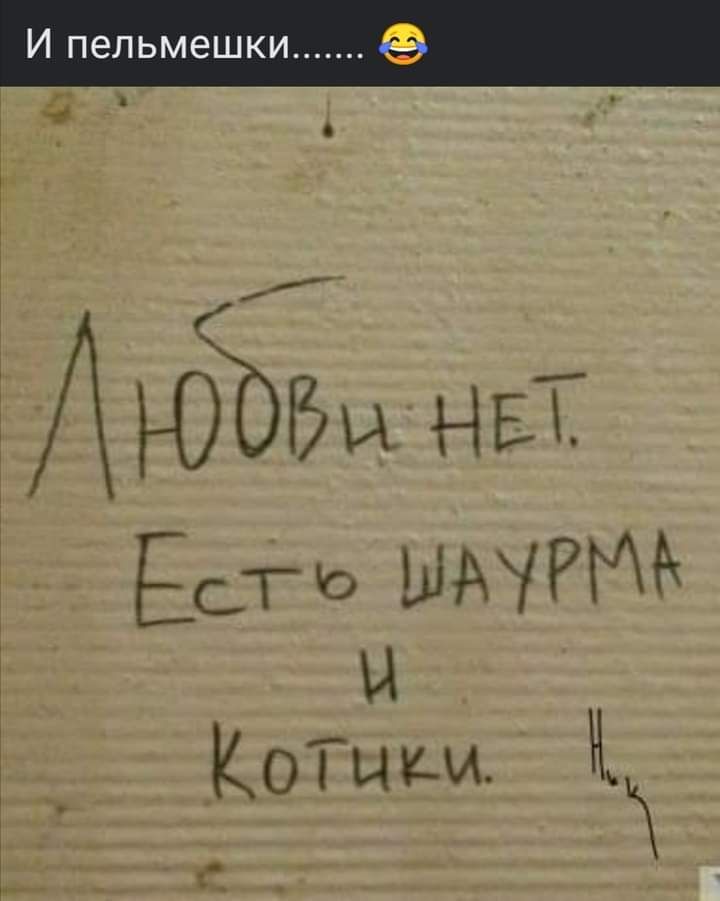 И пельмешки....... 😂
Любви нет.
Есть шаурма
и
котики.
Ник